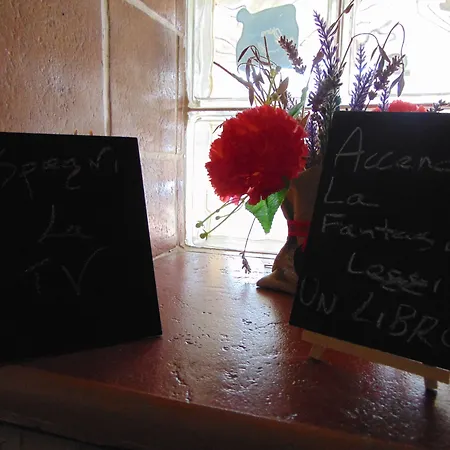 Spegni
La
TV
Accend
La
Fantas
Leggi
UN LIBRO